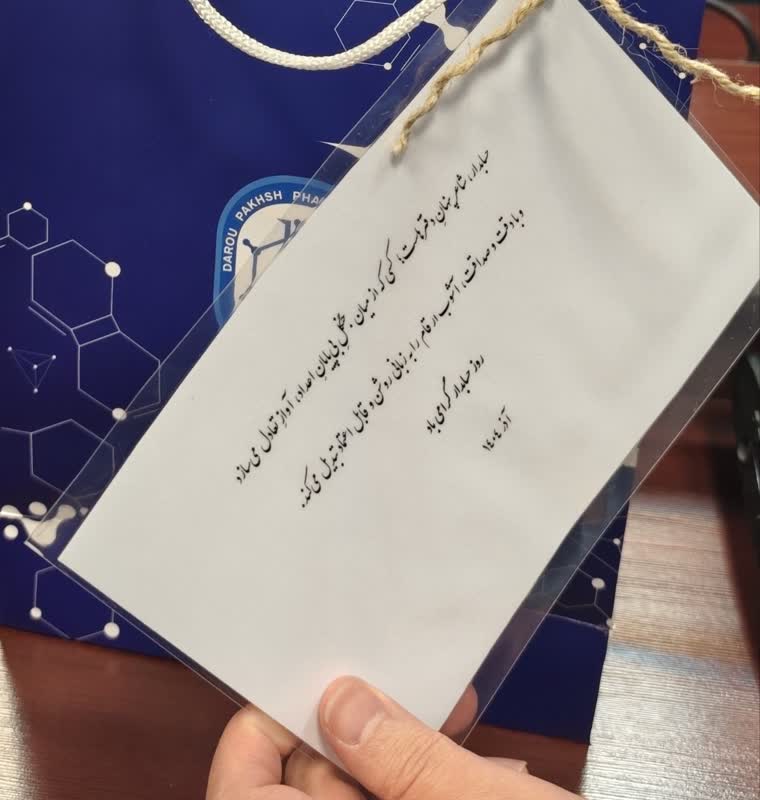 DAROU PAKHSH PHA
حسابدار، شاعرِ پنهانِ دفترهاست؛ کسی که از میان جنگلِ بی‌پایانِ اعداد، آوازِ تعادل می‌سازد
و با دقت و صداقت، آشوب ارقام را به زبانی روشن و قابل اعتماد تبدیل می‌کند.
روز حسابدار گرامی باد
آذر ۱۴۰۴